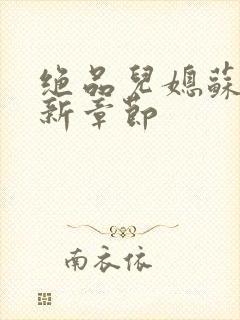 绝品兒媳蘇
新章節
南衣依